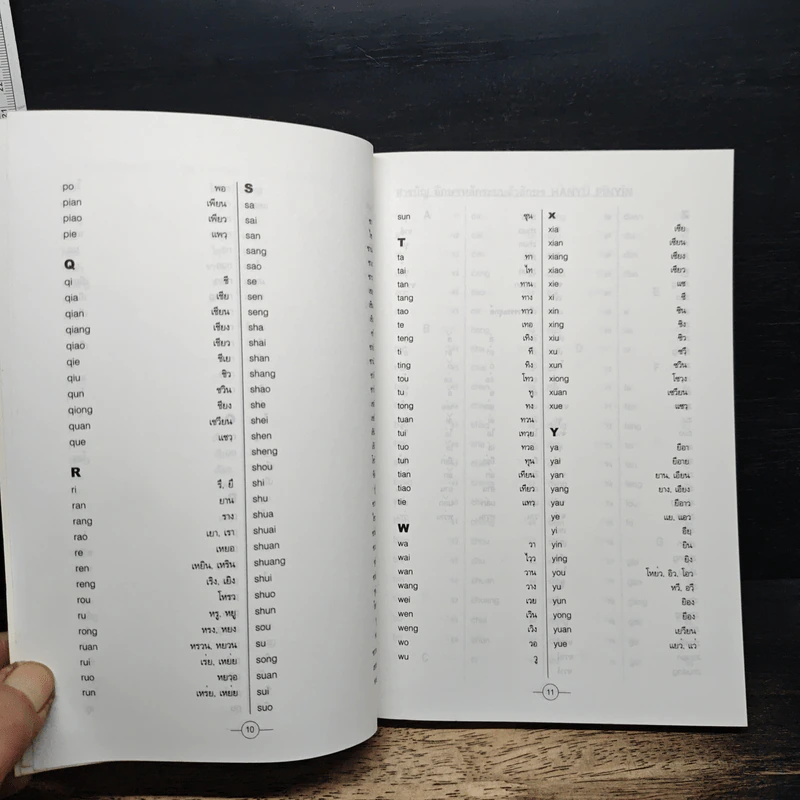 po พอ
pian เพียน
piao เพียว
pie แพว
Q
qi ชี
qia เชีย
qian เชียน
qiang เชียง
qiao เชียว
qie ชีเย
qiu ชิว
qun ชวิน
qiong ชียง
quan เชวียน
que แชว
R
ri รี, ยี
ran ยาน
rang ราง
rao เยา, เรา
re เหยอ
ren เหยิน, เหริน
reng เริง, เยิง
rou โหรว
ru หรู, หยู
rong หรง, หยง
ruan หรวน, หยวน
rui เร่ย, เหย่ย
ruo หยวอ
run เหร่ย, เหย่ย
S
sa
sai
san
sang
sao
se
sen
seng
sha
shai
shan
shang
shao
she
shei
shen
sheng
shou
shi
shu
shua
shuai
shuan
shuang
shui
shuo
shun
sou
su
song
suan
sui
suo
10
sun ซุน
T
ta ทา
tai ไท
tan ทาน
tang ทาง
tao ทาว
te เทอ
teng เทิง
ti ที
ting ทิง
tou โทว
tu ทู
tong ทง
tuan ทวน
tui เทวย
tuo ทวอ
tun ทุน
tian เทียน
tiao เทียว
tie แทว
W
wa วา
wai ไวว
wan วาน
wang วาง
wei เวย
wen เวิน
weng เวิง
wo วอ
wu วู
X
xia เซีย
xian เซียน
xiang เซียง
xiao เซียว
xie แซ
xi ซี
xin ซิน
xing ซิง
xiu ซิว
xu ซวี
xun ซวิน
xiong โซวง
xuan เซวียน
xue แซว
Y
ya ยีอา
yai ยีอาย
yan ยาน, เอียน
yang ยาง, เอียง
yau ยีอาว
ye แย, แอว
yi อีย
yin ยิน
ying ยิง
you โหย่ว, อิว, โอว
yu หวี, อวี
yun ย็อง
yong ย็อง
yuan เยวียน
yue แยว่, แว่
11